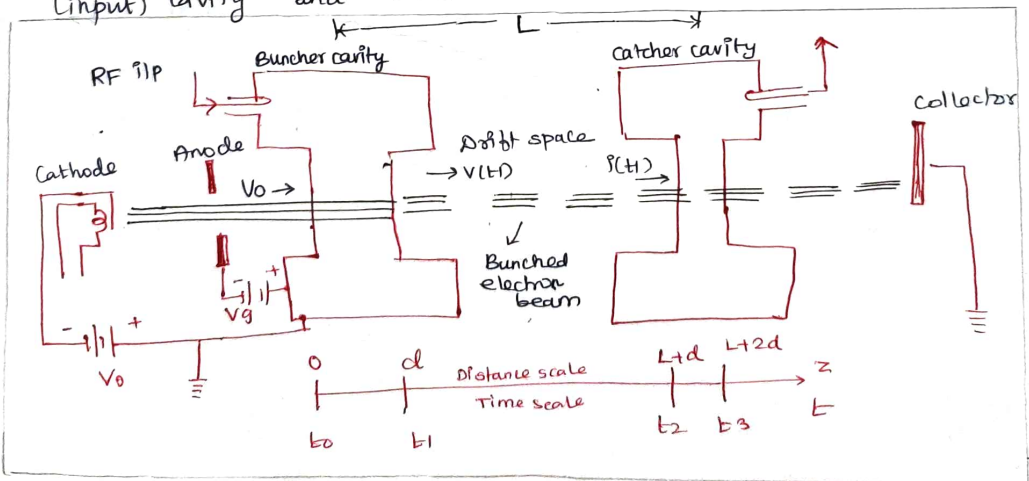 (input) cavity and
L
Buncher cavity
Catcher cavity
RF i/p
Collector
Cathode
Anode
Drift space
V0 →
→ V(t1)
i(t1)
Bunched
electron
beam
- +
Vg
- +
V0
0 d L+d L+2d
Distance scale z
Time scale t
t0 t1 t2 t3